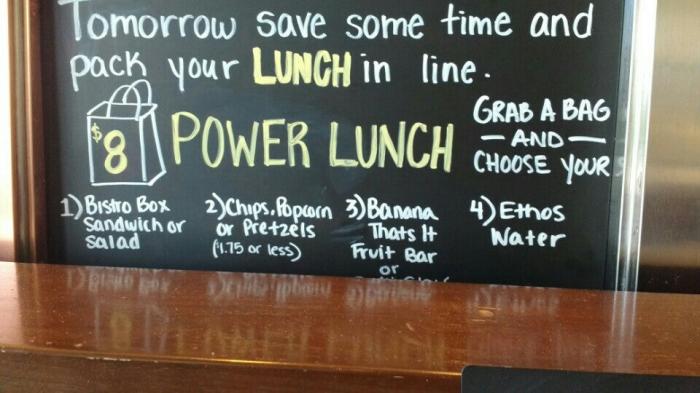 Tomorrow save some time and
pack your LUNCH in line.
$8 POWER LUNCH
GRAB A BAG
— AND —
CHOOSE YOUR
1) Bistro Box
Sandwich or
Salad
2) Chips, Popcorn
or Pretzels
($1.75 or less)
3) Banana
Thats It
Fruit Bar
or
4) Ethos
Water